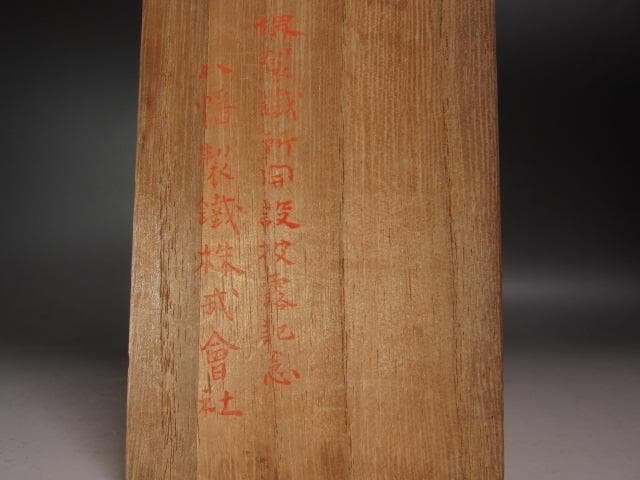 堺製鐵所開設披露記念
八幡製鐵株式會社